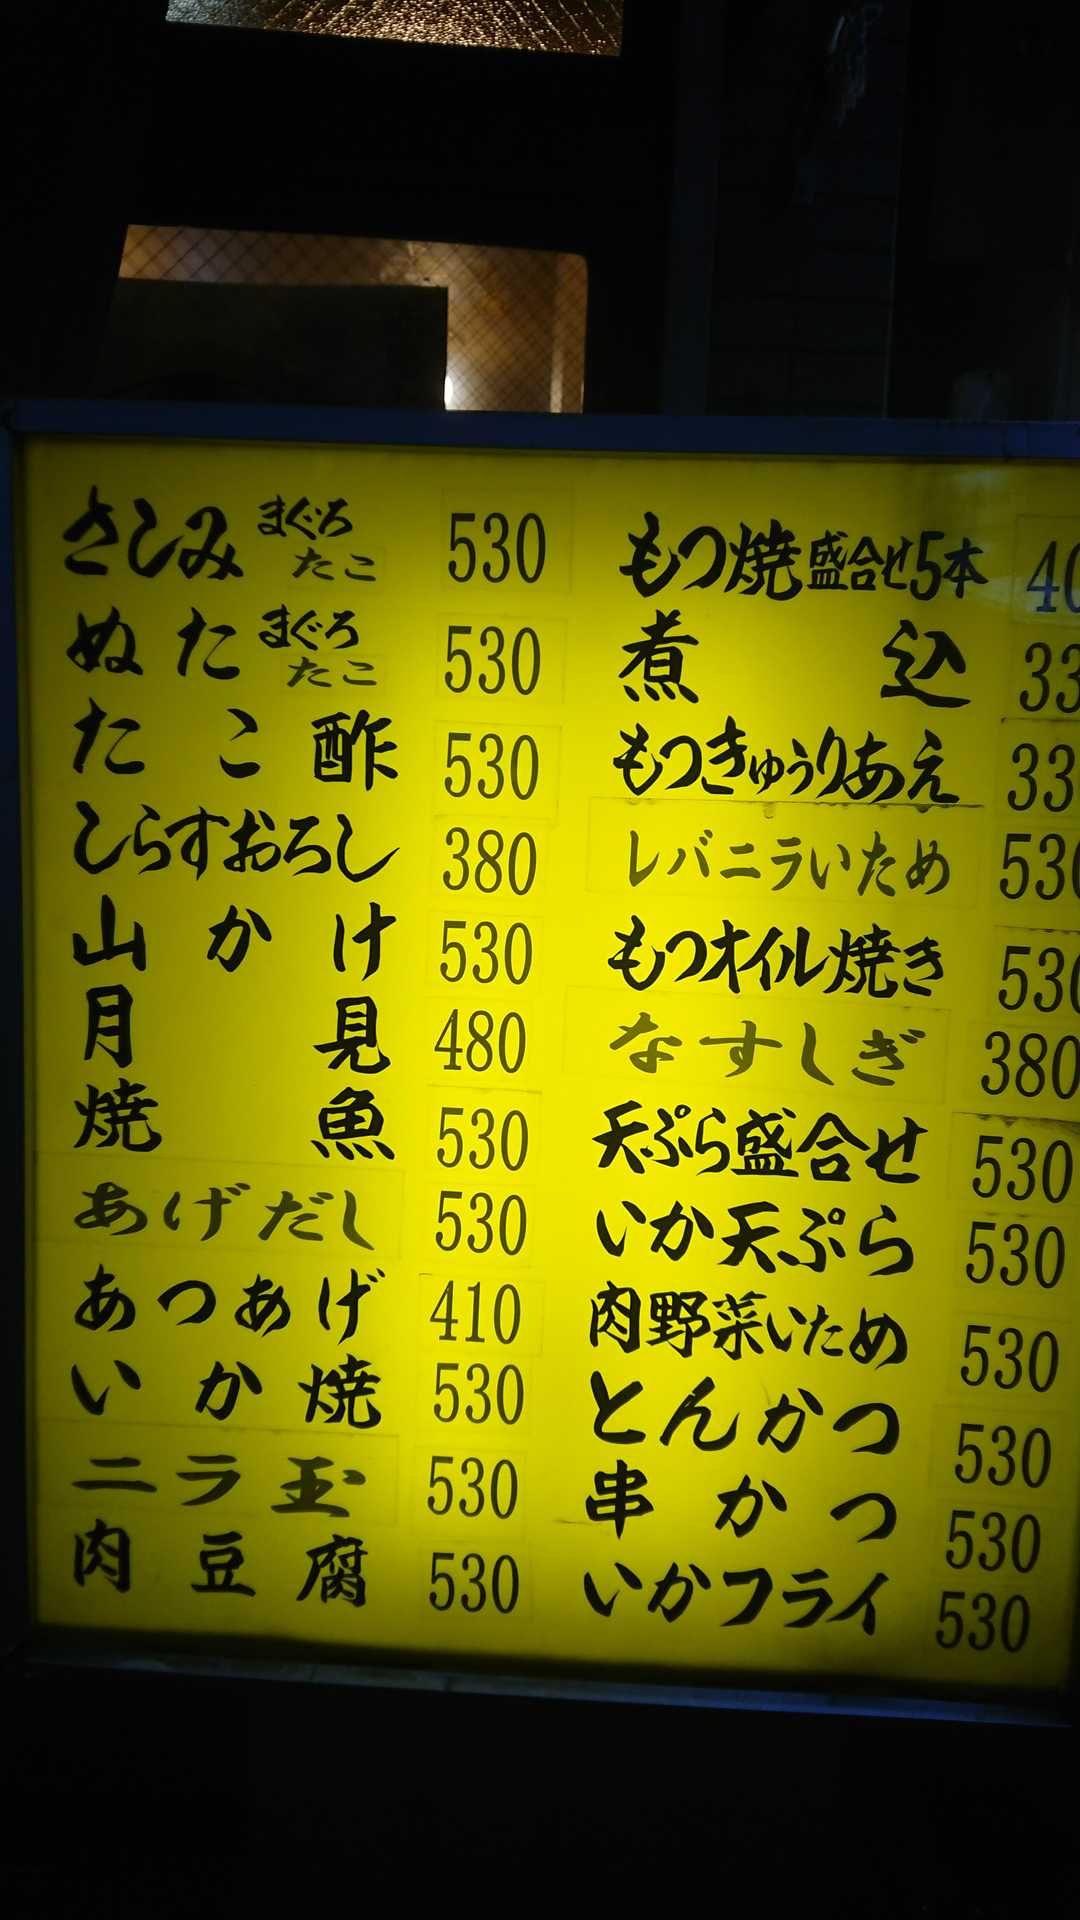 さしみ まぐろ たこ 530
ぬた まぐろ たこ 530
たこ酢 530
しらすおろし 380
山かけ 530
月見 480
焼魚 530
あげだし 530
あつあげ 410
いか焼 530
ニラ玉 530
肉豆腐 530
もつ焼盛合せ5本
煮込
もつきゅうりあえ
レバニラいため 530
もつオイル焼き 530
なすしぎ 380
天ぷら盛合せ 530
いか天ぷら 530
肉野菜いため 530
とんかつ 530
串かつ 530
いかフライ 530